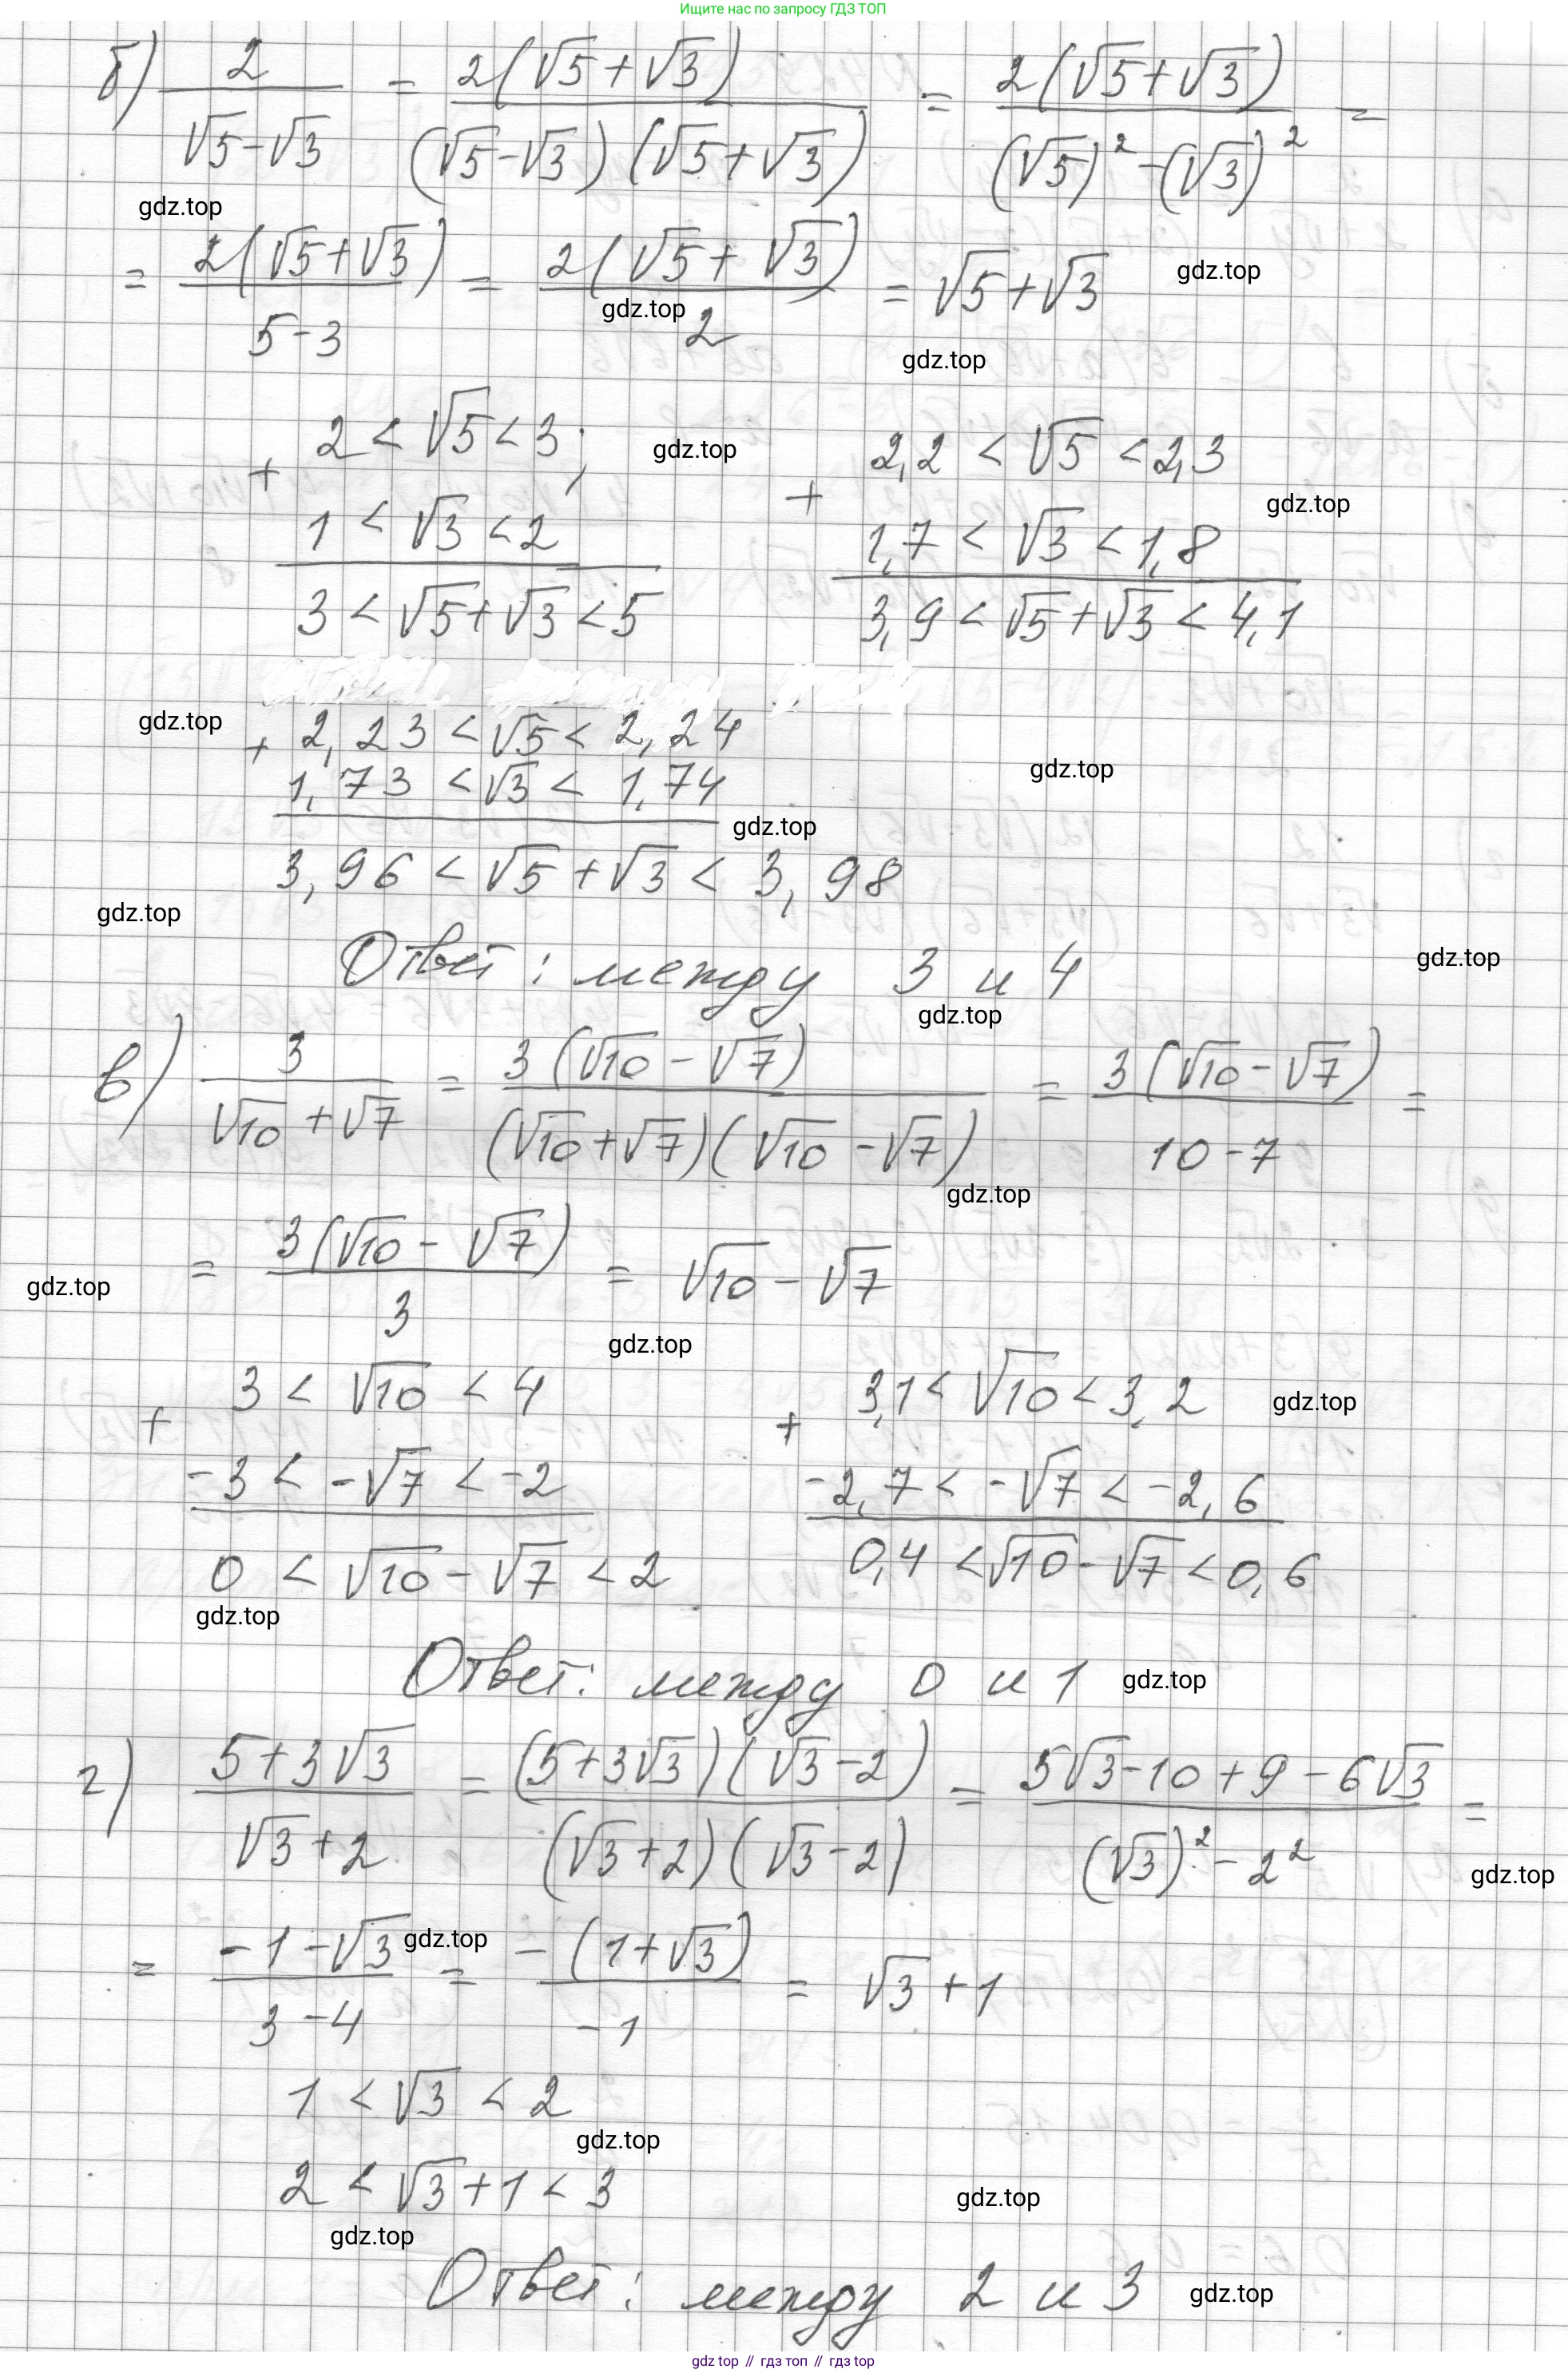 Ищите нас по запросу ГДЗ ТОП
б) 2/(√5-√3) = 2(√5+√3)/((√5-√3)(√5+√3)) = 2(√5+√3)/((√5)²-(√3)²) =
gdz.top
= 2(√5+√3)/(5-3) = 2(√5+√3)/2 = √5+√3
gdz.top
gdz.top
gdz.top
+ 2 < √5 < 3;
gdz.top
+ 2,2 < √5 < 2,3
gdz.top
1 < √3 < 2
1,7 < √3 < 1,8
3 < √5+√3 < 5
3,9 < √5+√3 < 4,1
gdz.top
+ 2,23 < √5 < 2,24
gdz.top
1,73 < √3 < 1,74
gdz.top
3,96 < √5+√3 < 3,98
gdz.top
Ответ: между 3 и 4
gdz.top
gdz.top
в) 3/(√10+√7) = 3(√10-√7)/((√10+√7)(√10-√7)) = 3(√10-√7)/(10-7) =
gdz.top
= 3(√10-√7)/3 = √10-√7
gdz.top
gdz.top
+ 3 < √10 < 4
+ 3,1 < √10 < 3,2
gdz.top
-3 < -√7 < -2
-2,7 < -√7 < -2,6
0 < √10-√7 < 2
0,4 < √10-√7 < 0,6
gdz.top
Ответ: между 0 и 1
gdz.top
г) (5+3√3)/(√3+2) = (5+3√3)(√3-2)/((√3+2)(√3-2)) = (5√3-10+9-6√3)/((√3)²-2²) =
gdz.top
= (-1-√3)/(3-4) = -(1+√3)/(-1) = √3+1
gdz.top
1 < √3 < 2
gdz.top
2 < √3+1 < 3
gdz.top
gdz.top
Ответ: между 2 и 3
gdz.top
gdz top // гдз топ // гдз top